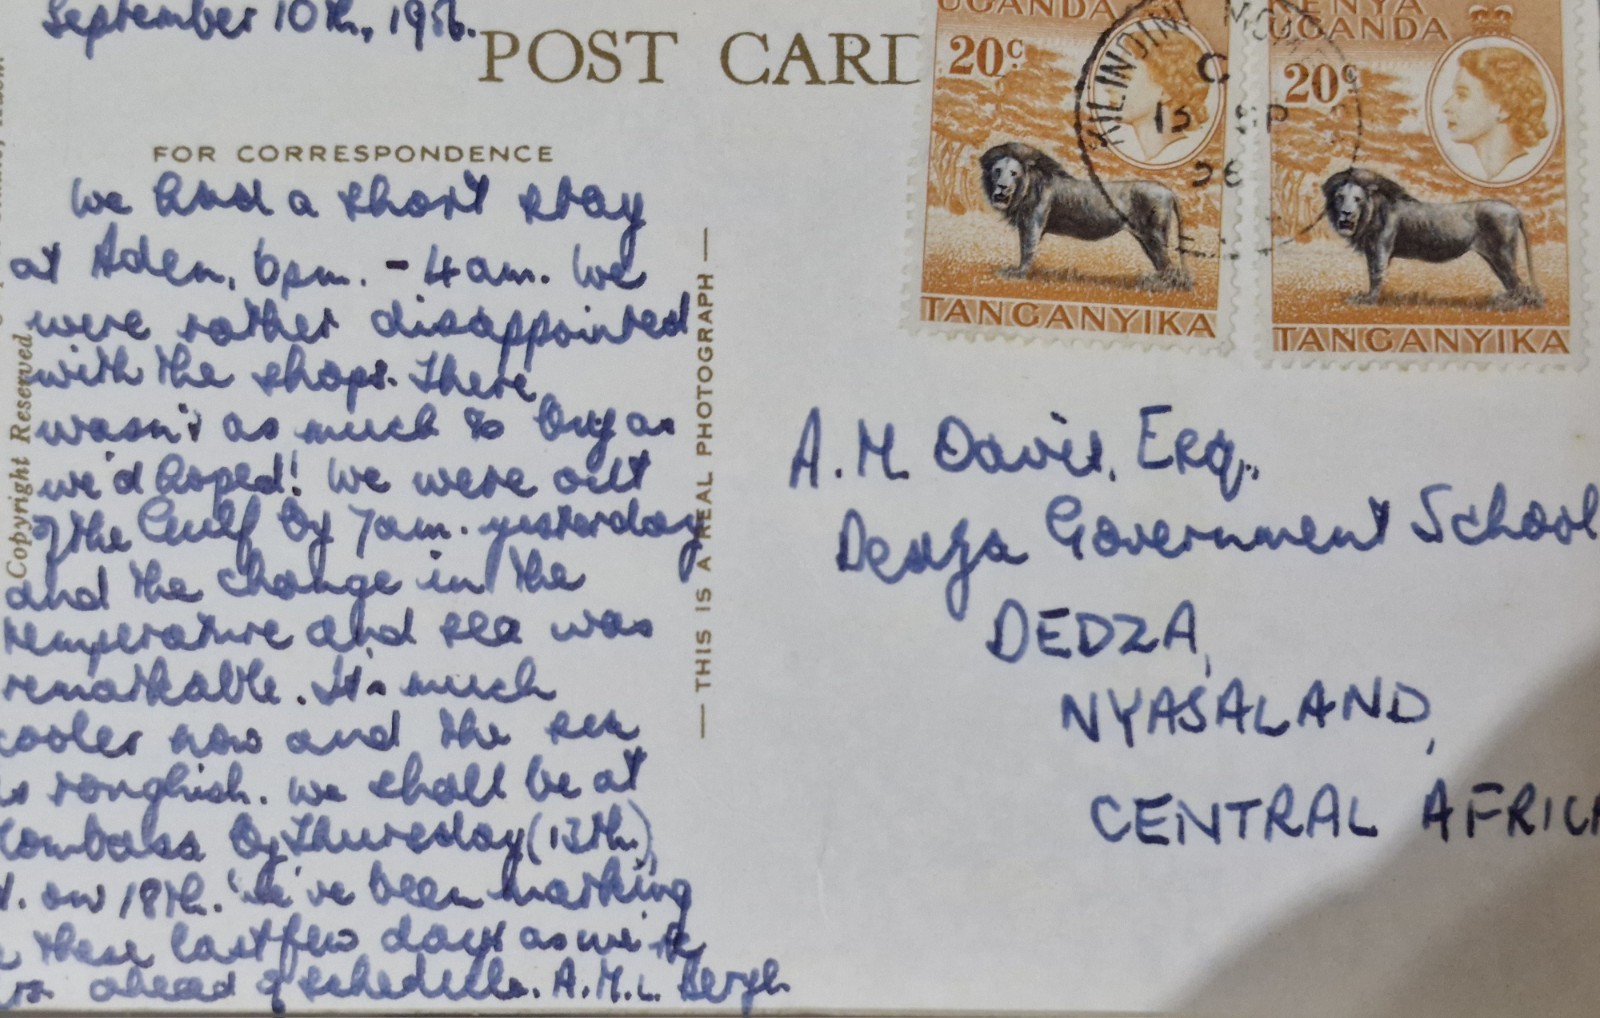 September 10th, 1956.
POST CARD
FOR CORRESPONDENCE
We had a short stay
at Aden, 6pm. - 4am. We
were rather disappointed
with the shops. There
wasn't as much to buy as
we'd hoped! We were out
of the Gulf by 7am. yesterday
and the change in the
temperature and sea was
remarkable. It's much
cooler now and the sea
is roughish. We shall be at
Mombasa by Thursday (13th),
on 18th. We've been marking
these last few days as we're
ahead of schedule. A.M.L. Bergh
Copyright Reserved
— THIS IS A REAL PHOTOGRAPH —
UGANDA
20c
TANGANYIKA
KENYA
UGANDA
20c
TANGANYIKA
KILINDINI
C
13 SP
56
A.M. Davis, Esq.,
Dedza Government School
DEDZA,
NYASALAND,
CENTRAL AFRICA